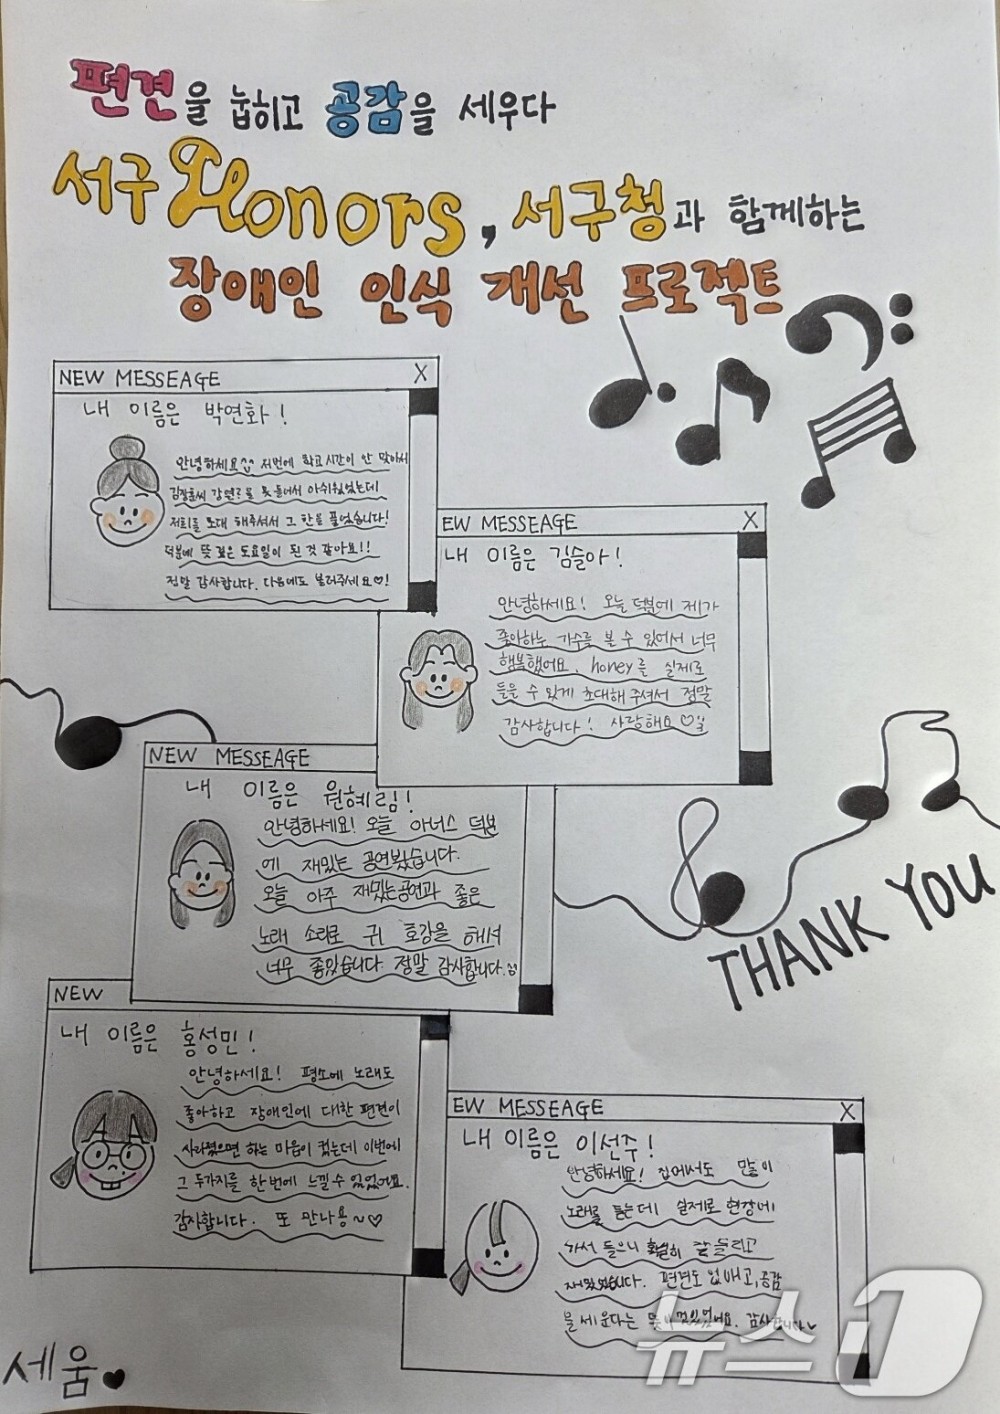 편견을 눕히고 공감을 세우다
서구 Honors, 서구청과 함께하는
장애인 인식 개선 프로젝트
NEW MESSEAGE X
내 이름은 박연화!
안녕하세요^^ 저번에 학교시간이 안 맞아서
강연을 못 들어서 아쉬웠었는데
저희를 초대 해주셔서 그 한을 풀었습니다!
덕분에 뜻 깊은 토요일이 된 것 같아요!!
정말 감사합니다. 다음에도 불러주세요♡!
EW MESSEAGE X
내 이름은 김슬아!
안녕하세요! 오늘 덕분에 제가
좋아하는 가수를 볼 수 있어서 너무
행복했어요. honey를 실제로
들을 수 있게 초대해 주셔서 정말
감사합니다! 사랑해요♡
NEW MESSEAGE
내 이름은 원혜림!
안녕하세요! 오늘 아너스 덕분
에 재밌는 공연봤습니다.
오늘 아주 재밌는공연과 좋은
노래 소리로 귀 호강을 해서
너무 좋았습니다 정말 감사합니다.
NEW
내 이름은 홍성민!
안녕하세요! 평소에 노래도
좋아하고 장애인에 대한 편견이
사라졌으면 하는 마음이 컸는데 이번에
그 두가지를 한번에 느낄 수 있었어요.
감사합니다. 또 만나용~♡
EW MESSEAGE X
내 이름은 이선주!
안녕하세요! 집에서도 많이
노래를 듣는데 실제로 현장에
가서 들으니 확실히 잘 들리고
재밌었습니다. 편견도 없애고, 공감
을 세운다는 감사합니다♥
THANK YOU
세움♥
뉴스1